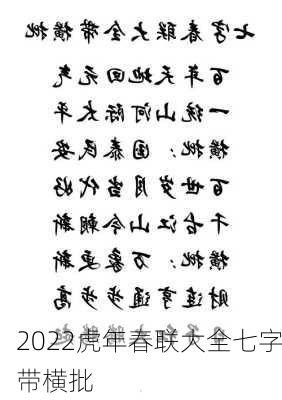 七字春联大全带横批
百年天地回元气
一统山河际太平
横批：国泰民安
百世岁月当代好
千古江山今朝新
横批：万象更新
财连亨通步步高
2022虎年春联大全七字
带横批